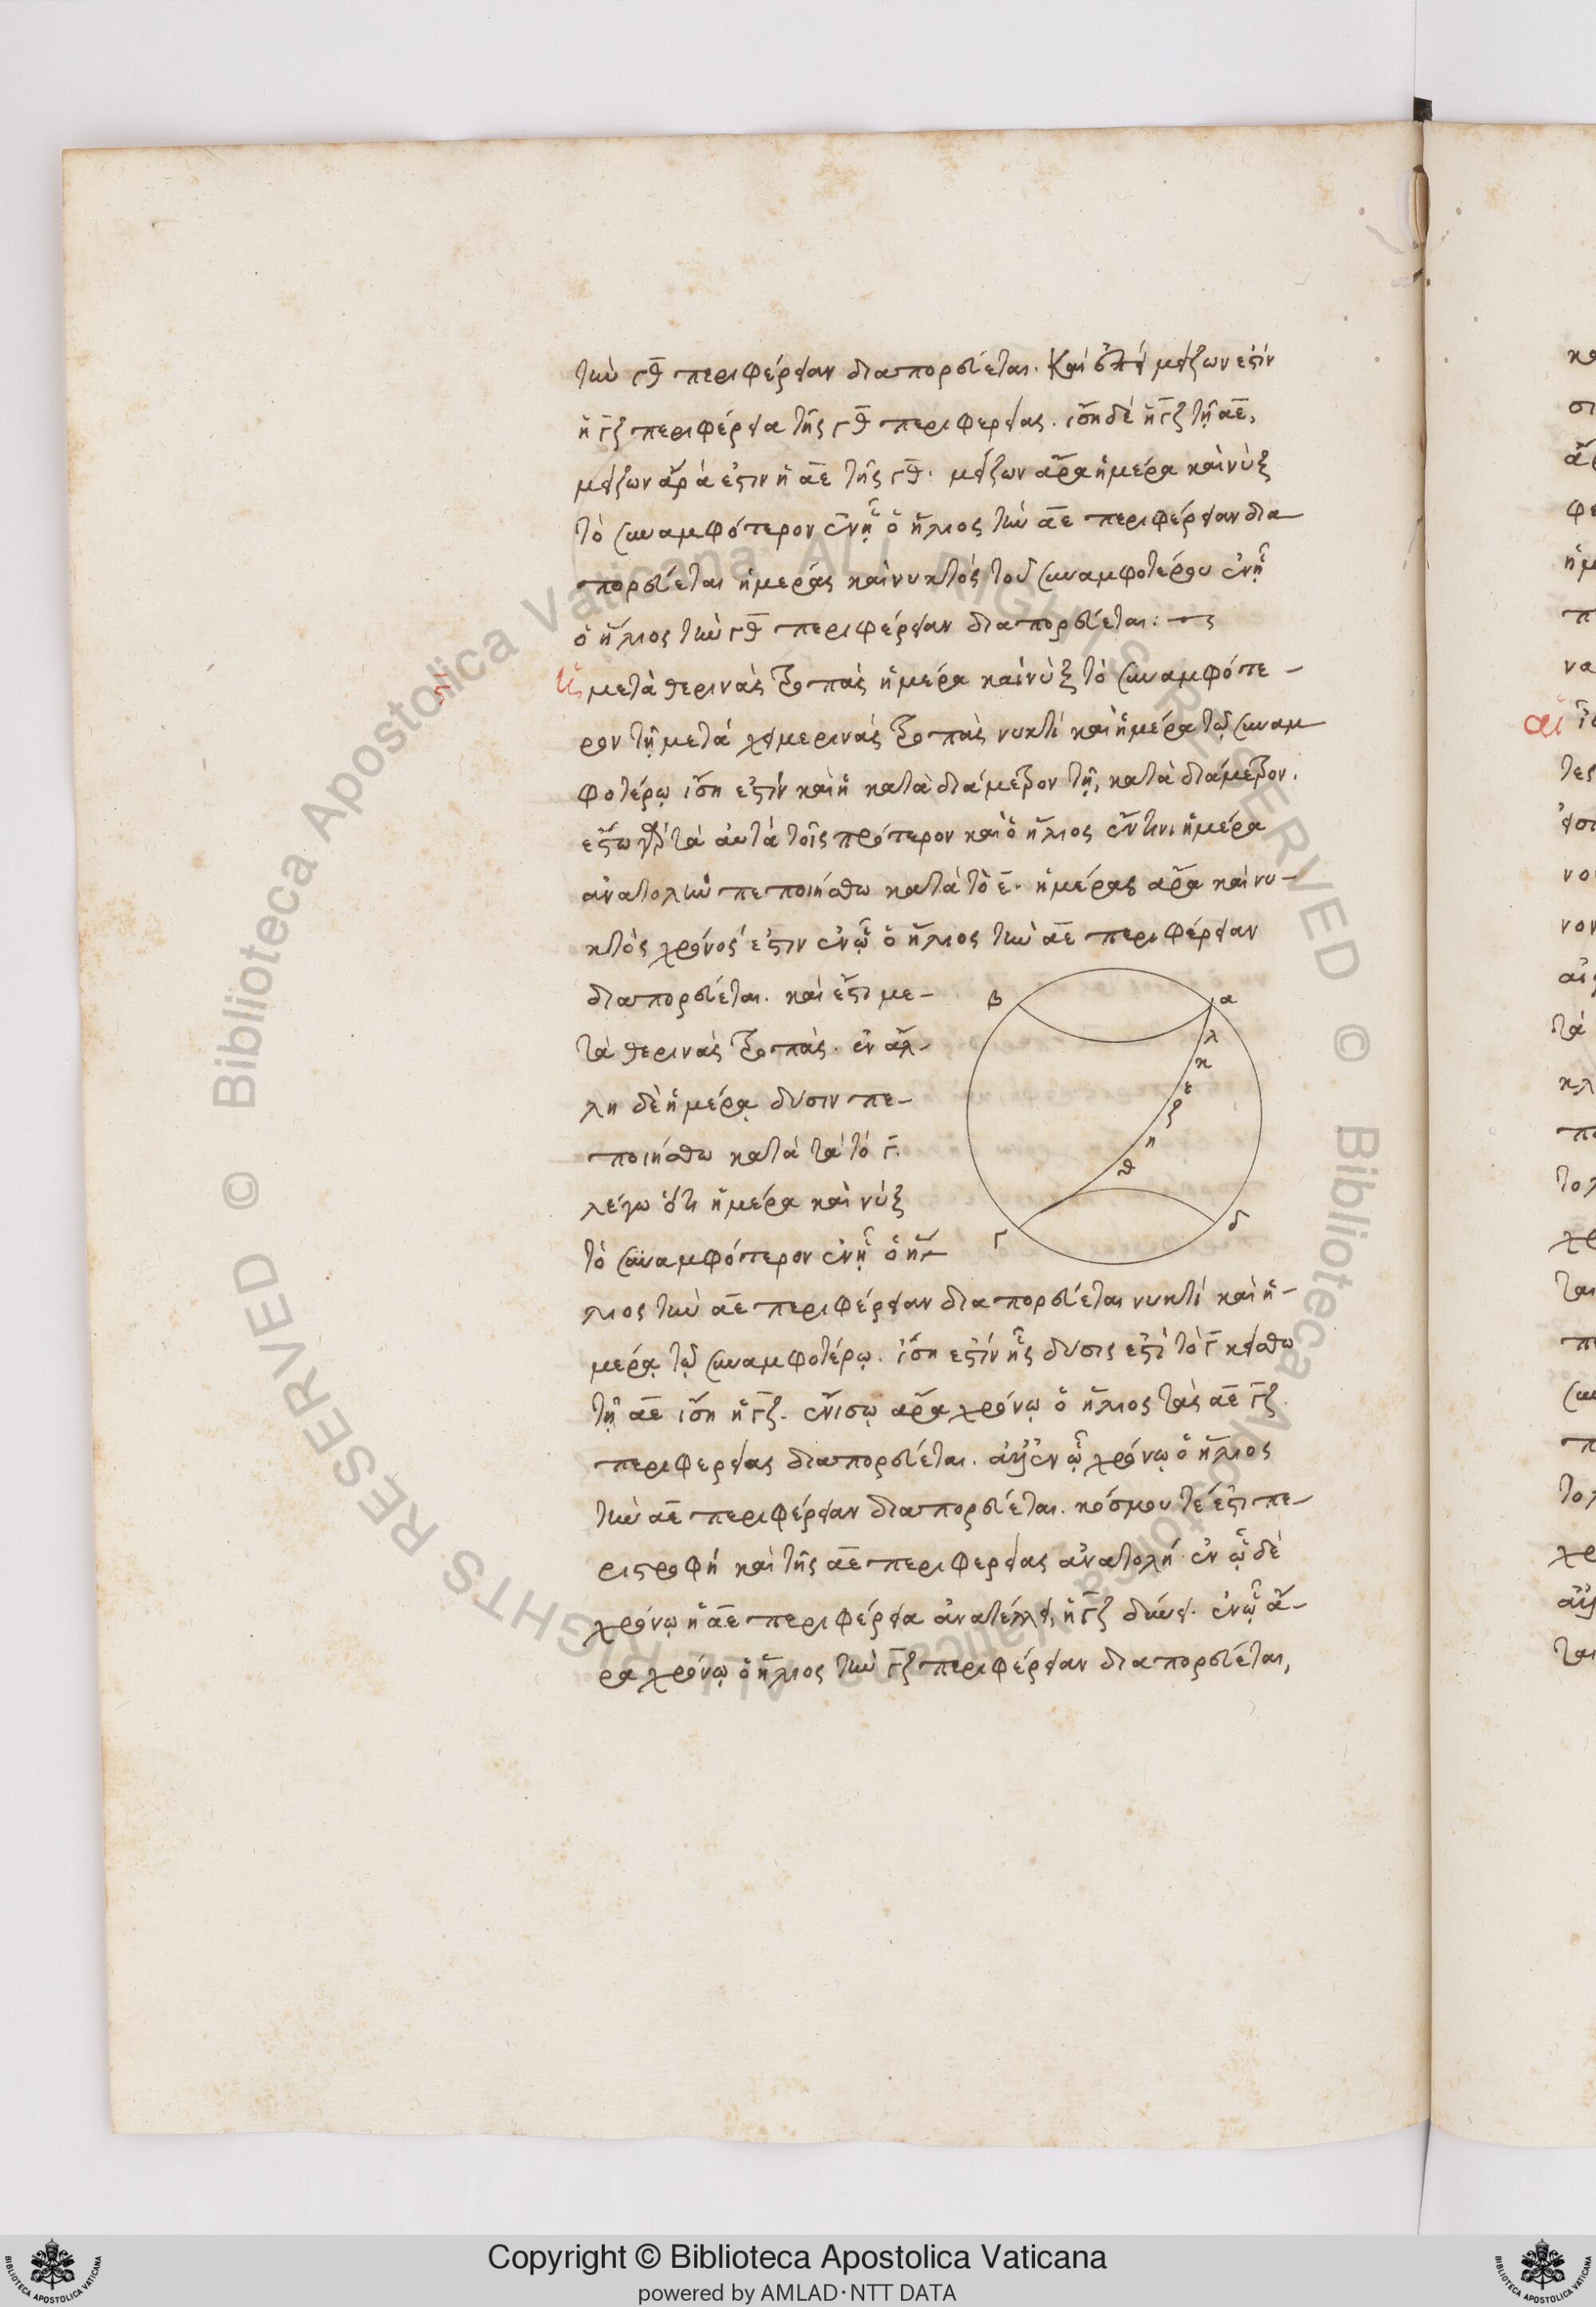 τὴν γθ περιφέρειαν διαπορεύεται. Καὶ ἐπεὶ μείζων ἐστὶν
ἡ γζ περιφέρεια τῆς γθ περιφερείας. ἴση δὲ ἡ γζ τῇ αε,
μείζων ἄρά ἐστιν ἡ αε τῆς γθ. μείζων ἄρα ἡμέρα καὶ νὺξ
τὸ συναμφότερον ἐν ᾗ ὁ ἥλιος τὴν αε περιφέρειαν δια-
πορεύεται ἡμέρας καὶ νυκτὸς τοῦ συναμφοτέρου ἐν ᾗ
ὁ ἥλιος τὴν γθ περιφέρειαν διαπορεύεται:
Ἡ μετὰ θερινὰς τροπὰς ἡμέρα καὶ νὺξ τὸ συναμφότε-
ρον τῇ μετὰ χειμερινὰς τροπὰς νυκτὶ καὶ ἡμέρα τῷ συναμ-
φοτέρῳ ἴση ἐστίν καὶ ἡ κατὰ διάμετρον τῇ, κατὰ διάμετρον.
ἔστω γὰρ τὰ αὐτὰ τοῖς πρότερον καὶ ὁ ἥλιος ἔν τινι ἡμέρα
ἀνατολὴν πεποιήσθω κατὰ τὸ ε. ἡμέρας ἄρα καὶ νυ-
κτὸς χρόνος ἐστιν ἐν ᾧ ὁ ἥλιος τὴν αε περιφέρειαν
διαπορεύεται. καὶ ἔστι με-
τὰ θερινὰς τροπὰς. ἐν ἄλ-
λη δὲ ἡμέρᾳ δύσιν πε-
ποιήσθω κατὰ τὰ τὸ γ.
λέγω ὅτι ἡμέρα καὶ νὺξ
τὸ συναμφότερον ἐν ᾗ ὁ ἥ-
λιος τὴν αε περιφέρειαν διαπορεύεται νυκτὶ καὶ ἡ-
μέρᾳ τῷ συναμφοτέρῳ. ἴση ἐστίν ἧς δύσις ἐστὶ τὸ γ κείσθω
τῇ αε ἴση ἡ γζ. ἐν ἴσῳ ἄρα χρόνῳ ὁ ἥλιος τὰς αε γζ
περιφερείας διαπορεύεται. ἀλλ' ἐν ᾧ χρόνῳ ὁ ἥλιος
τὴν αε περιφέρειαν διαπορεύεται. κόσμου τέ ἐστι πε-
ριστροφή καὶ τῆς αε περιφερείας ἀνατολή. ἐν ᾧ δὲ
χρόνῳ ἡ αε περιφέρεια ἀνατέλλει, ἡ γζ δύνει. ἐν ᾧ ἄ-
ρα χρόνῳ ὁ ἥλιος τὴν γζ περιφέρειαν διαπορεύεται,
β α
λ
κ
ε
ζ
η
θ
γ δ
Copyright © Biblioteca Apostolica Vaticana
powered by AMLAD·NTT DATA